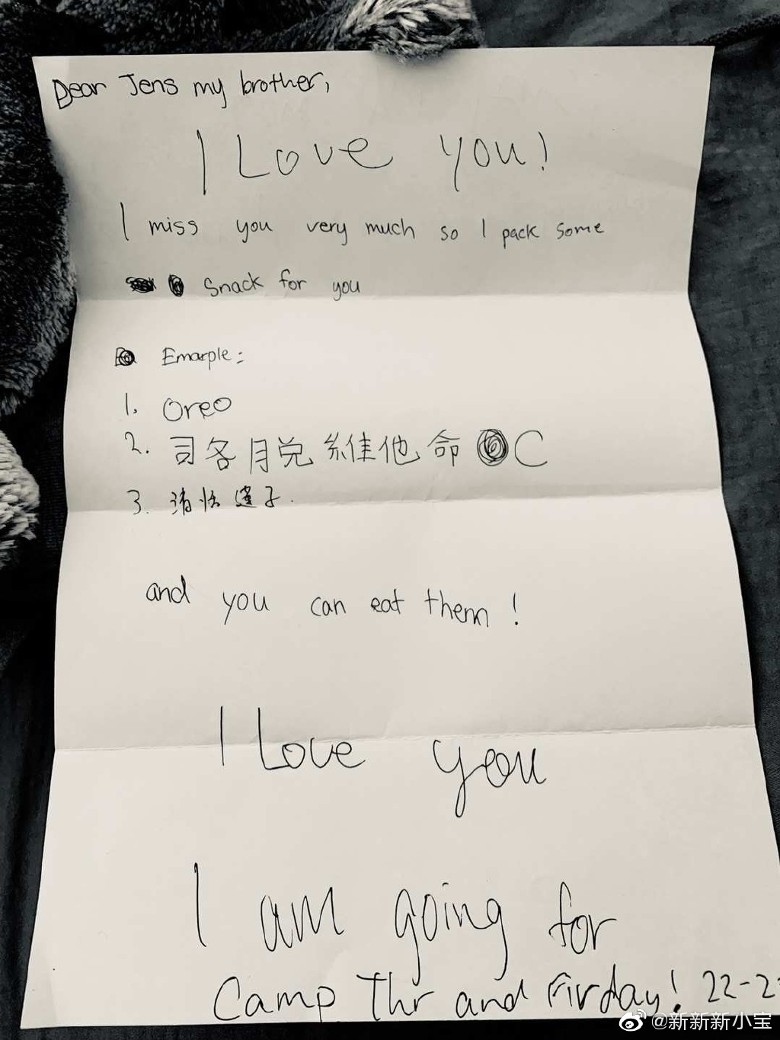 Dear Jens my brother,
I Love you!
I miss you very much so I pack some
Snack for you
Emarple:
1. Oreo
2. 司各脱維他命 C
3. 清怡
and you can eat them!
I Love you
I am going for
Camp Thr and Firday! 22-2
@新新新小宝